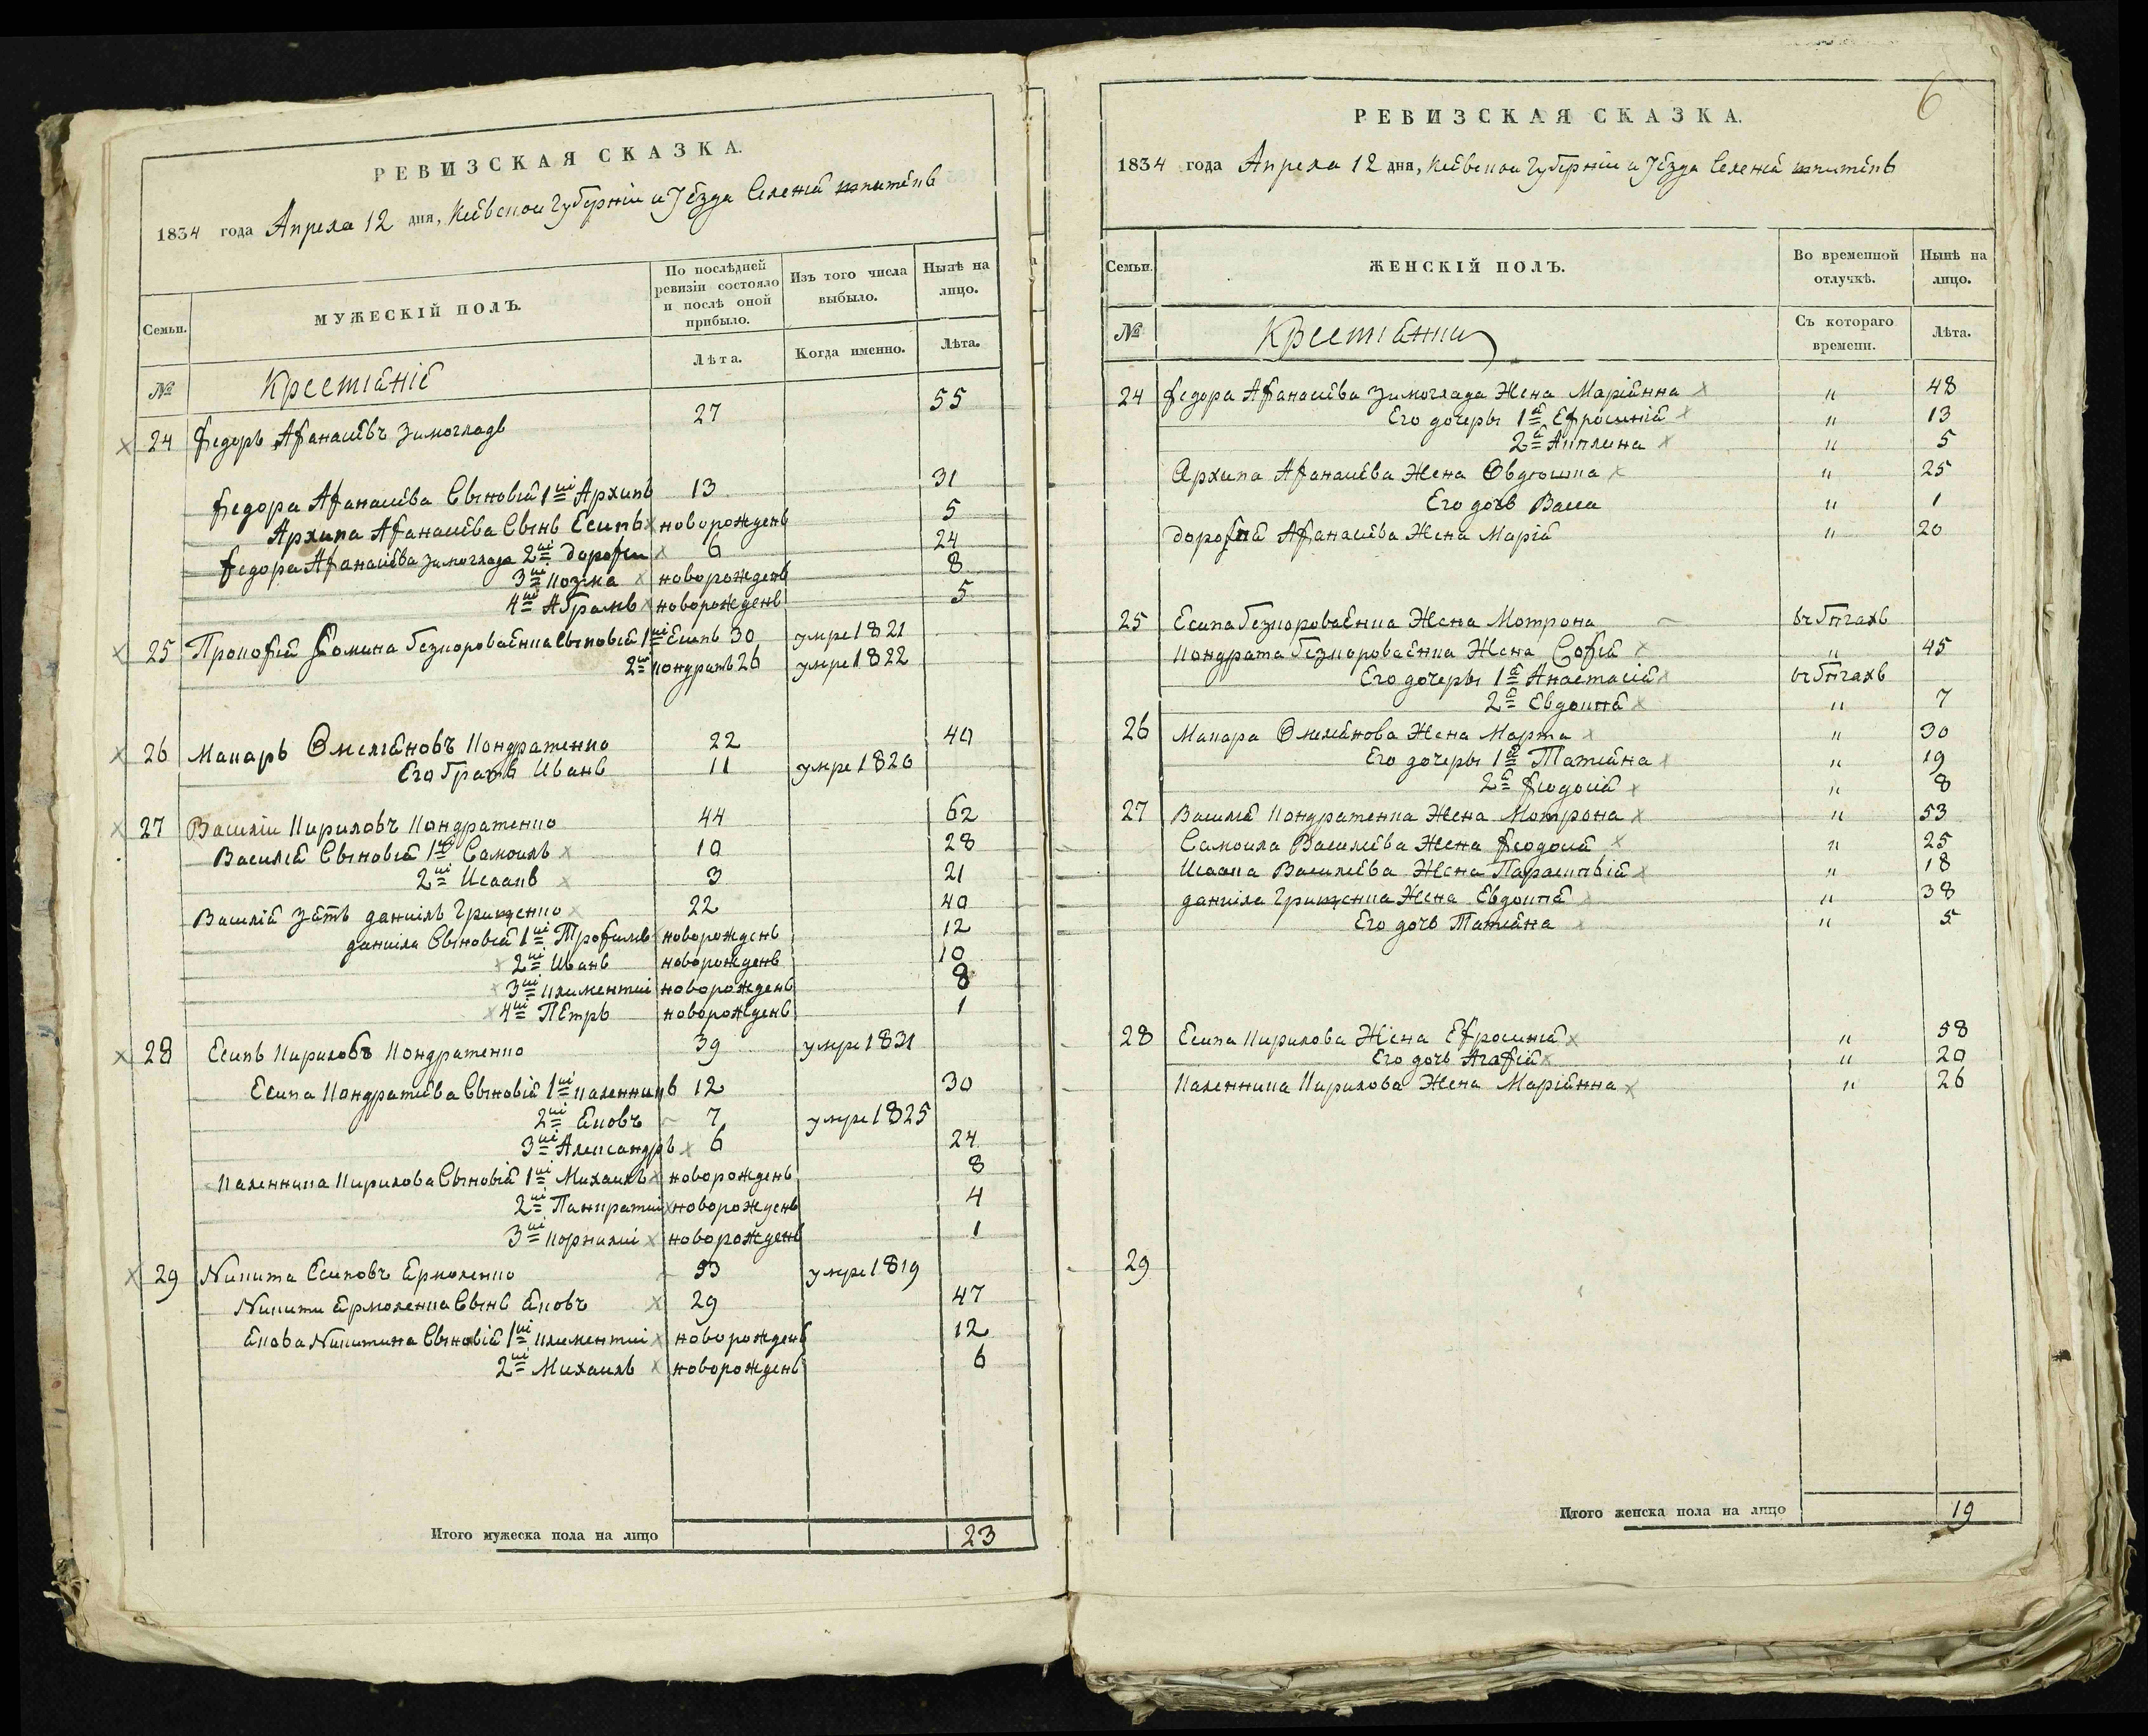 РЕВИЗСКАЯ СКАЗКА.
1834 года Апреля 12 дня, Кіевской Губерніи и Уезда Селенія
Семьи.
МУЖЕСКІЙ ПОЛЪ.
По послѣдней ревизіи состояло и послѣ оной прибыло.
Изъ того числа выбыло.
Нынѣ на лицо.
№
Крестіяніе
Лѣта.
Когда именно.
Лѣта.
24 Федоръ Афанасіевъ Зимогладъ 27 55
Федора Афанасіева Сыновія 1й Архипъ 13 31
Архипа Афанасіева Сынъ Есипъ новорожденъ 5
Федора Афанасіева Зимоглада 2й Дорофеи 6 24
3й Козма новорожденъ 8
4й Абрамъ новорожденъ 5
25 Прокофія Фомина Безкороваенка Сыновія 1й Есипъ 30 умре 1821
2й Кондратъ 26 умре 1822
26 Макарь Омеляновъ Кондратенко 22 40
Его братъ Иванъ 11 умре 1826
27 Василіи Кириловъ Кондратенко 44 62
Василія Сыновія 1й Самоилъ 10 28
2й Исаакъ 3 21
Василія Зять Даниіль Грищенко 22 40
Даниіла Сыновія 1й Трофимъ новорожденъ 12
2й Иванъ новорожденъ 10
3й Климентіи новорожденъ 8
4й ПЕтръ новорожденъ 1
28 Есипъ Кириловъ Кондратенко 39 умре 1831
Есипа Кондратіева Сыновія 1й Каленникъ 12 30
2й Яковъ 7 умре 1825
3й Александръ 6 24
Каленника Кирилова Сыновія 1й Михаилъ новорожденъ 8
2й Панкратіи новорожденъ 4
3й Корнилій новорожденъ 1
29 Никита Есиповъ Ермоленко 53 умре 1819
Никити Ермоленка Сынъ Яковъ 29 47
Якова Никитина Сыновія 1й Климентіи новорожденъ 12
2й Михаилъ новорожденъ 6
Итого мужеска пола на лицо 23
6
РЕВИЗСКАЯ СКАЗКА.
1834 года Апреля 12 дня, Кіевской Губерніи и Уезда Селенія
Семьи.
ЖЕНСКІЙ ПОЛЪ.
Во временной отлучкѣ.
Нынѣ на лицо.
№
Крестіянки
Съ котораго времени.
Лѣта.
24 Федора Афанасіева Зимоглада Жена Маріянна " 48
Его дочеры 1я Ефросинія " 13
2я Акилина " 5
Архипа Афанасіева Жена Овдюшка " 25
Его дочь Васса " 1
Дорофія Афанасіева Жена Марія " 20
25 Есипа Безкороваенка Жена Мотрона въ бѣгахъ
Кондрата Безкороваенка Жена Софія " 45
Его дочеры 1я Анастасія въ бѣгахъ
2я Евдокія " 7
26 Макара Омелянова Жена Марта " 30
Его дочеры 1я Татіяна " 19
2я Феодосія " 8
27 Василія Кондратенка Жена Мотрона " 53
Самоила Василіева Жена Феодосія " 25
Исаака Василіева Жена Парасковія " 18
Даниіла Грищенка Жена Евдокія " 38
Его дочь Татіяна " 5
28 Есипа Кирилова Жена Ефросинія " 58
Его дочь Агафія " 20
Каленника Кирилова Жена Маріянна " 26
29
Итого женска пола на лицо 19